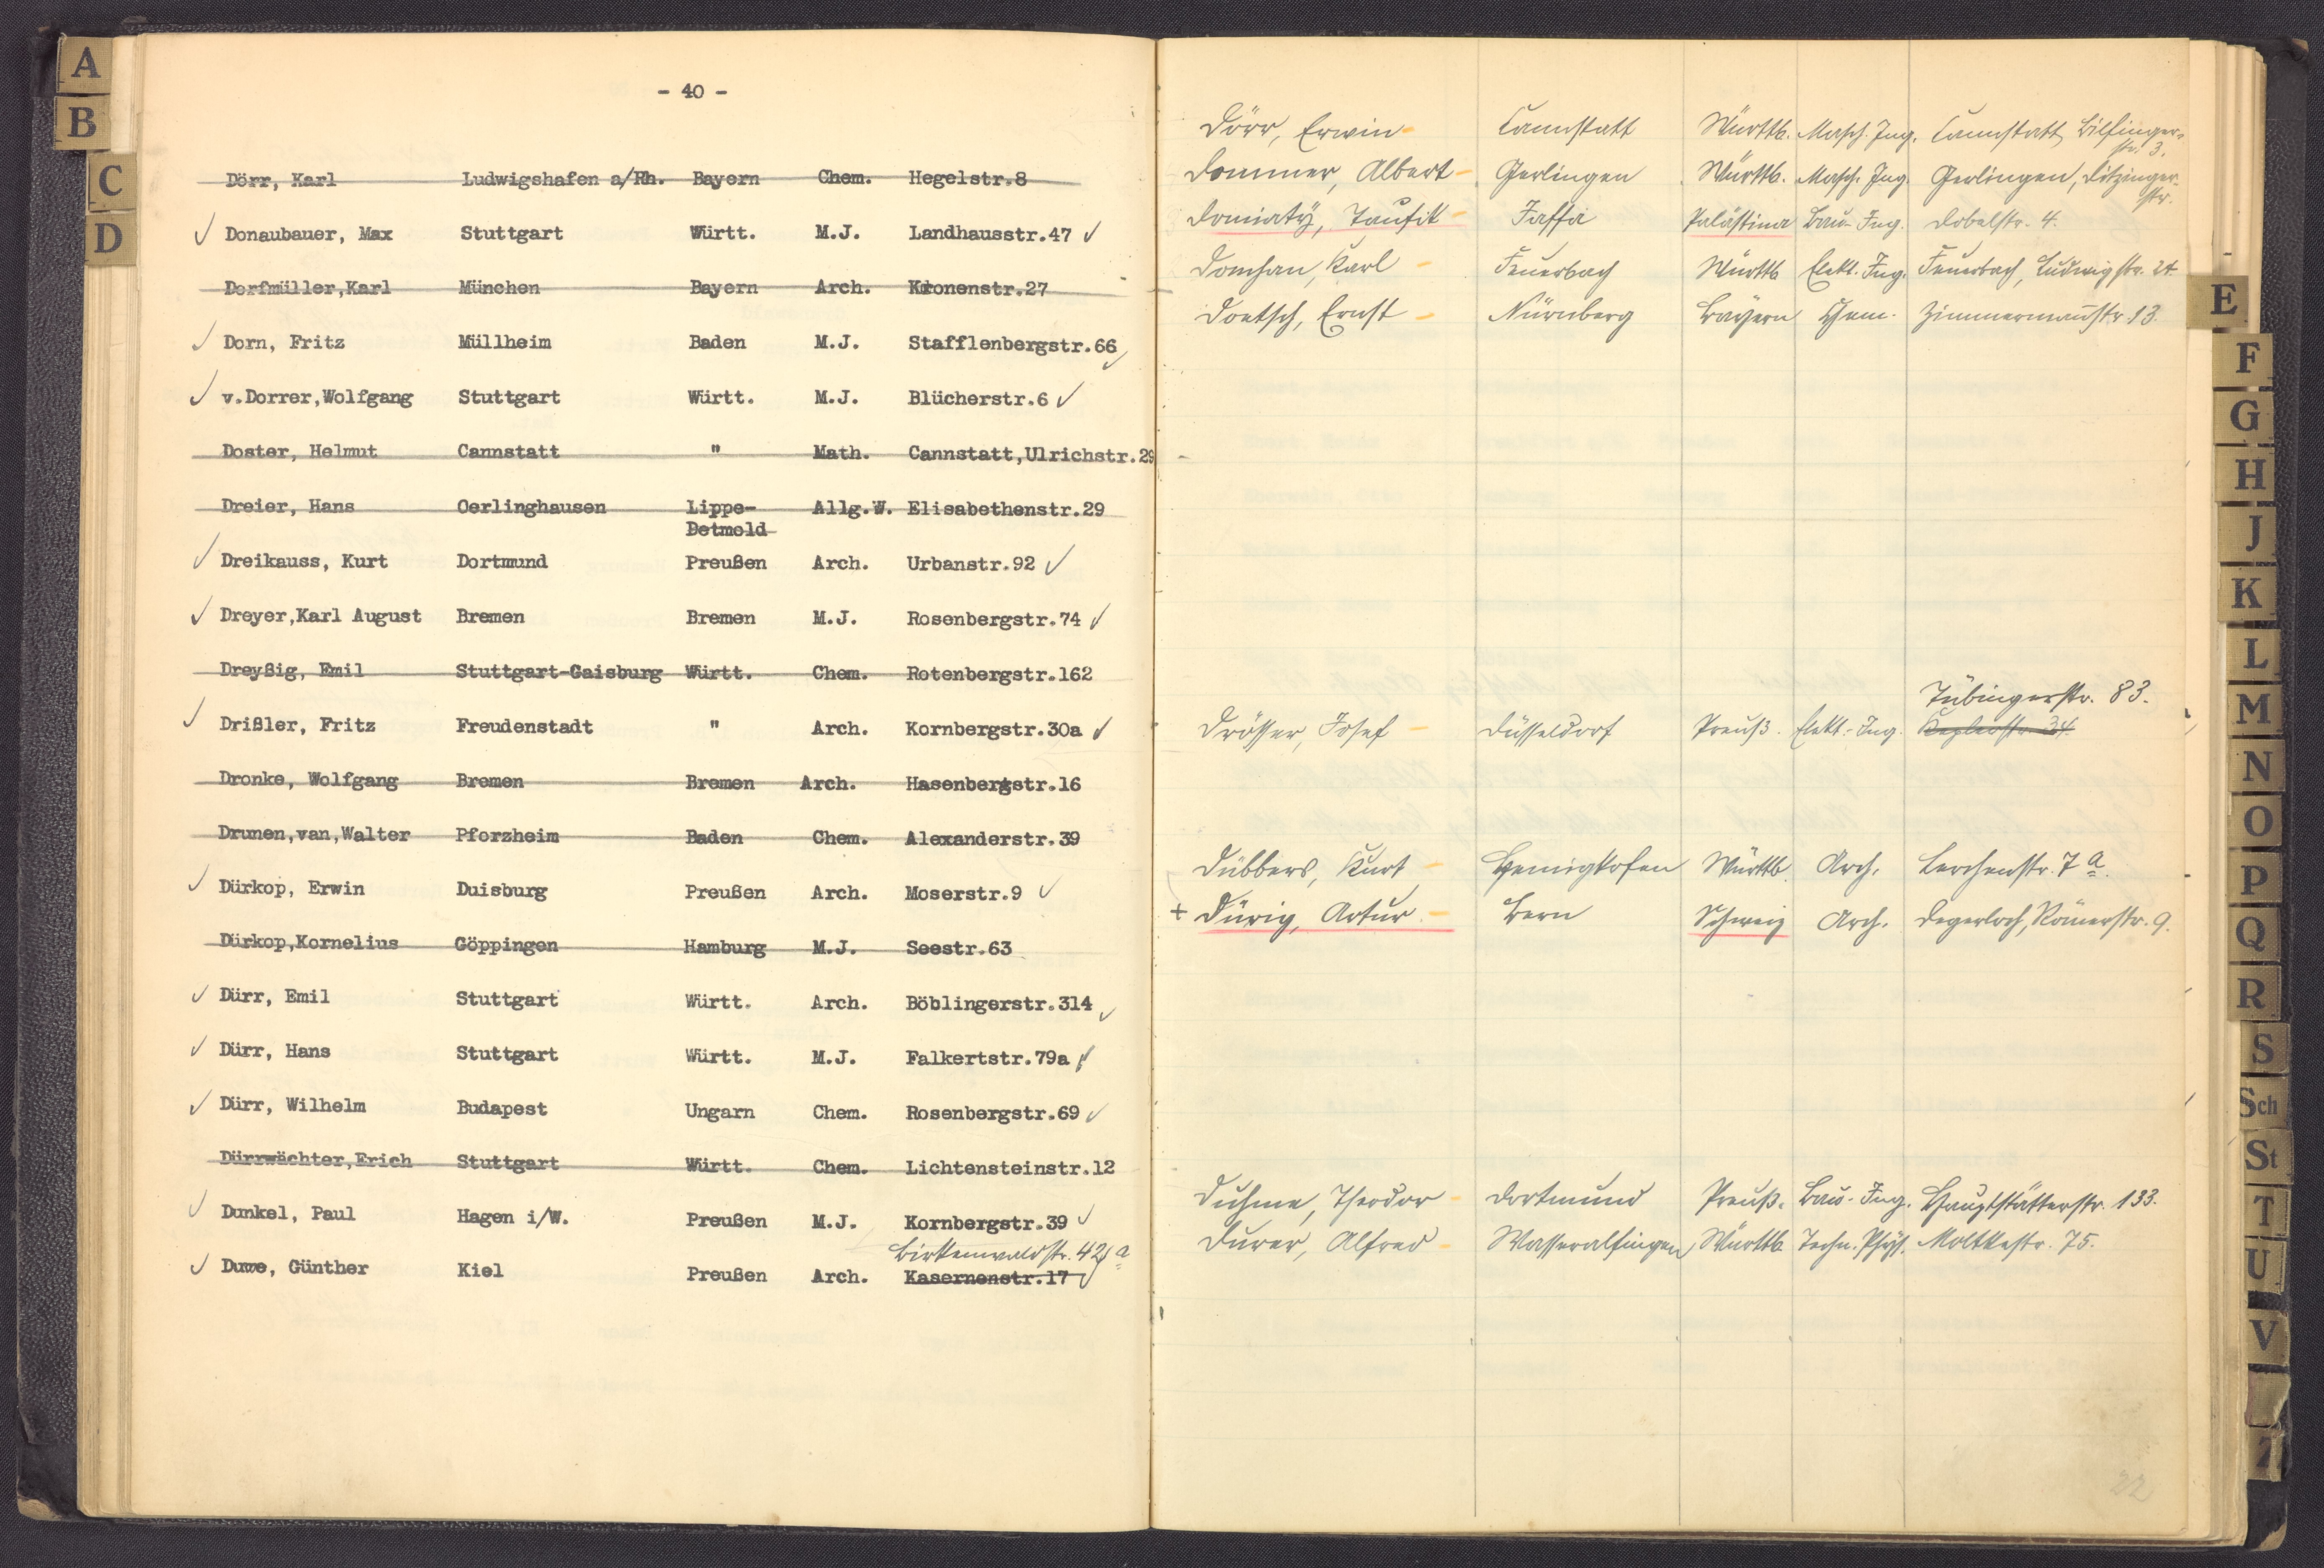 A
B
C
D
- 40 -
Dörr, Karl Ludwigshafen a/Rh. Bayern Chem. Hegelstr.8
✓ Donaubauer, Max Stuttgart Württ. M.J. Landhausstr.47 ✓
Dorfmüller,Karl München Bayern Arch. Kronenstr.27
✓ Dorn, Fritz Müllheim Baden M.J. Stafflenbergstr.66 ✓
✓ v.Dorrer,Wolfgang Stuttgart Württ. M.J. Blücherstr.6 ✓
Doster, Helmut Cannstatt " Math. Cannstatt,Ulrichstr.29
Dreier, Hans Oerlinghausen Lippe- Allg.W. Elisabethenstr.29
Detmold
✓ Dreikauss, Kurt Dortmund Preußen Arch. Urbanstr.92 ✓
✓ Dreyer,Karl August Bremen Bremen M.J. Rosenbergstr.74 ✓
Dreyßig, Emil Stuttgart-Gaisburg Württ. Chem. Rotenbergstr.162
✓ Drißler, Fritz Freudenstadt " Arch. Kornbergstr.30a ✓
Dronke, Wolfgang Bremen Bremen Arch. Hasenbergstr.16
Drunen,van,Walter Pforzheim Baden Chem. Alexanderstr.39
✓ Dürkop, Erwin Duisburg Preußen Arch. Moserstr.9 ✓
Dürkop,Kornelius Göppingen Hamburg M.J. Seestr.63
✓ Dürr, Emil Stuttgart Württ. Arch. Böblingerstr.314 ✓
✓ Dürr, Hans Stuttgart Württ. M.J. Falkertstr.79a ✓
✓ Dürr, Wilhelm Budapest Ungarn Chem. Rosenbergstr.69 ✓
Dürrwächter,Erich Stuttgart Württ. Chem. Lichtensteinstr.12
✓ Dunkel, Paul Hagen i/W. Preußen M.J. Kornbergstr.39 ✓
Birkenwaldstr. 42 a
✓ Duwe, Günther Kiel Preußen Arch. Kasernenstr.17 ✓
Dörr, Erwin - Cannstatt Württb. Masch. Ing. Cannstatt, Bilfinger-
str. 3.
Dommer, Albert - Gerlingen Württb. Masch. Ing. Gerlingen, Ditzinger-
str.
Domiaty, Taufik - Jaffa Palästina Bau-Ing. Dobelstr. 4.
Domhan, Karl - Feuerbach Württb Elekt. Ing. Feuerbach, Ludwigstr. 24
Doetsch, Ernst - Nürnberg Bayern Chem. Zimmermannstr. 13.
Tübingerstr. 83.
Drösser, Josef - Düsseldorf Preuß. Elekt.-Ing. Keplerstr. 34
Dübbers, Kurt - Hemigkofen Württb. Arch. Lerchenstr. 7 a.
+ Dürig, Artur - Bern Schweiz Arch. Degerloch, Römerstr. 9.
Duhme, Theodor - Dortmund Preuß. Bau-Ing. Hauptstätterstr. 133.
Durer, Alfred - Wasseralfingen Württb. Techn. Phys. Moltkestr. 75.
22
E
F
G
H
J
K
L
M
N
O
P
Q
R
S
Sch
St
T
U
V
Z